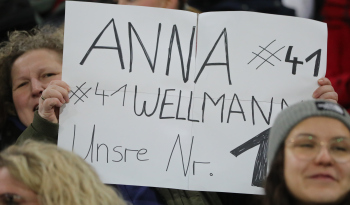 ANNA #41
#41 WELLMANN
Unsre Nr. 1